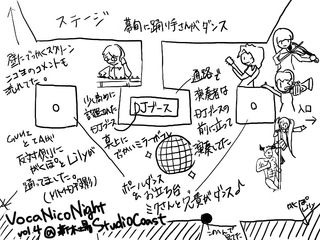 ステージ
幕間に踊り子さんがダンス
壁にでっかくスクリーン
ニコ生のコメントも
流れてた。
少し高めに
設置された
DJブース
DJブース
真上に
でかいミラーボール
通路を
演奏者は
DJブースの
前に立って
演奏してた
入口
GUMIと
反対側に
がくぽとLilyが
踊ってました。
ポールダンス
&お立ち台
ミクさんと兄貴がダンス♪
VocaNicoNight
vol.4 @ 新木場 StudioCoast
このへんで見てた